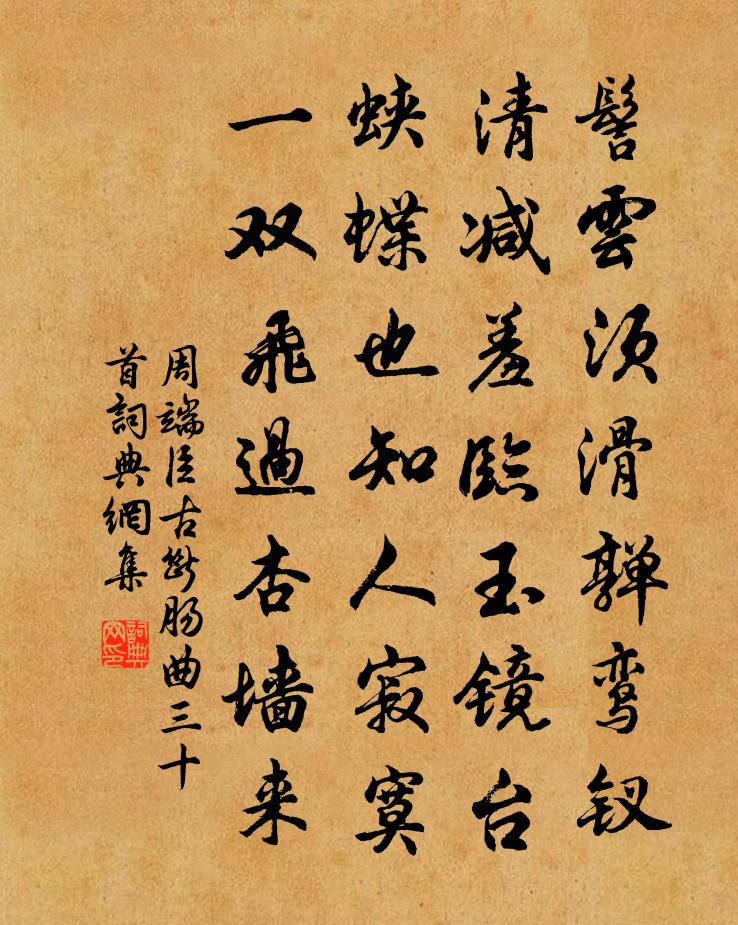 髻雲须滑嚲鸾钗
清减羞臨玉镜台
蛱蝶也知人寂寞
一双飛過杏墙来
周端臣古断肠曲三十
首詞典網集
詞典网印